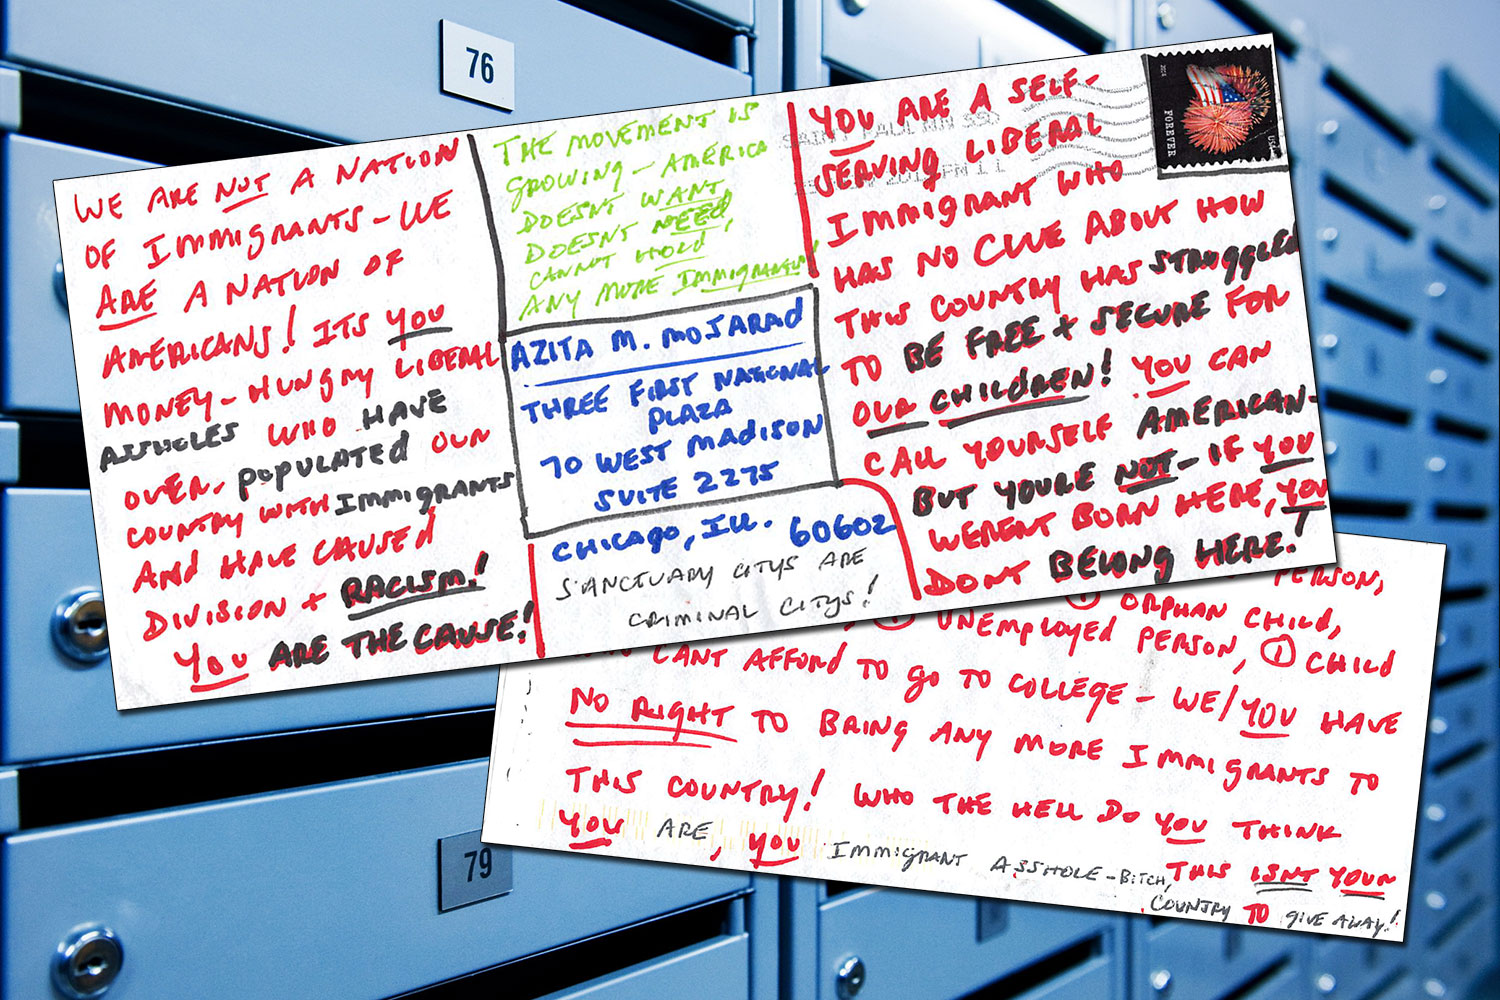 76
WE ARE NOT A NATION
OF IMMIGRANTS - WE
ARE A NATION OF
AMERICANS! ITS YOU
MONEY-HUNGRY LIBERAL
ASSHOLES WHO HAVE
OVER-POPULATED OUR
COUNTRY WITH IMMIGRANTS
AND HAVE CAUSED
DIVISION + RACISM!
YOU ARE THE CAUSE!
THE MOVEMENT IS
GROWING - AMERICA
DOESNT WANT
DOESNT NEED,
CANNOT HOLD,
ANY MORE IMMIGRANTS!
AZITA M. MOJARAD
THREE FIRST NATIONAL
PLAZA
70 WEST MADISON
SUITE 2275
CHICAGO, ILL. 60602
SANCTUARY CITYS ARE
CRIMINAL CITYS!
YOU ARE A SELF-
SERVING LIBERAL
IMMIGRANT WHO
HAS NO CLUE ABOUT HOW
THIS COUNTRY HAS STRUGGLED
TO BE FREE + SECURE FOR
OUR CHILDREN! YOU CAN
CALL YOURSELF AMERICAN-
BUT YOURE NOT - IF YOU
WERENT BORN HERE, YOU
DONT BELONG HERE!
SAINT PAUL MN
FOREVER
USA
PERSON,
① ORPHAN CHILD,
① UNEMPLOYED PERSON, ① CHILD
CANT AFFORD TO GO TO COLLEGE - WE/YOU HAVE
NO RIGHT TO BRING ANY MORE IMMIGRANTS TO
THIS COUNTRY! WHO THE HELL DO YOU THINK
YOU ARE, YOU IMMIGRANT ASSHOLE-BITCH,
THIS ISNT YOUR
COUNTRY TO GIVE AWAY!
79